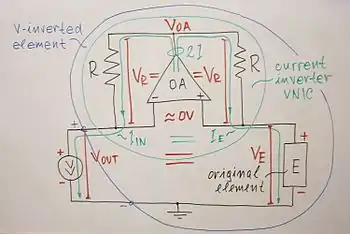 V-inverted
element
V_OA
2I
R
V_R =
= V_R
R
OA
- +
current
inverter
VNIC
≈ 0V
I_IN
I_E
+
+
V
V_OUT
original
element
V_E
E
-
-